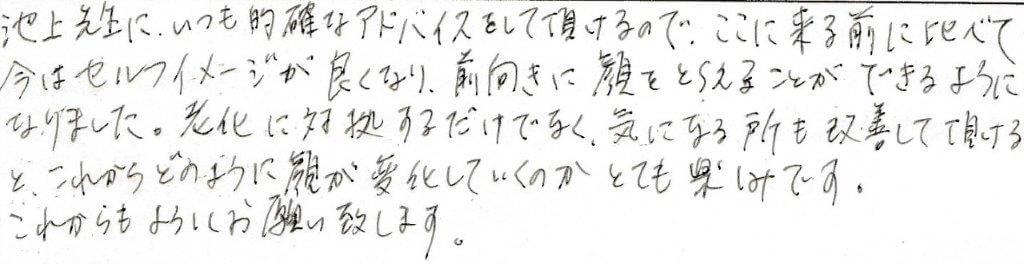 池上先生に、いつも的確なアドバイスをして頂けるので、ここに来る前に比べて
今はセルフイメージが良くなり、前向きに顔をとらえることができるように
なりました。老化に対処するだけでなく、気になる所も改善して頂ける
と、これからどのように顔が変化していくのかとても楽しみです。
これからもよろしくお願い致します。